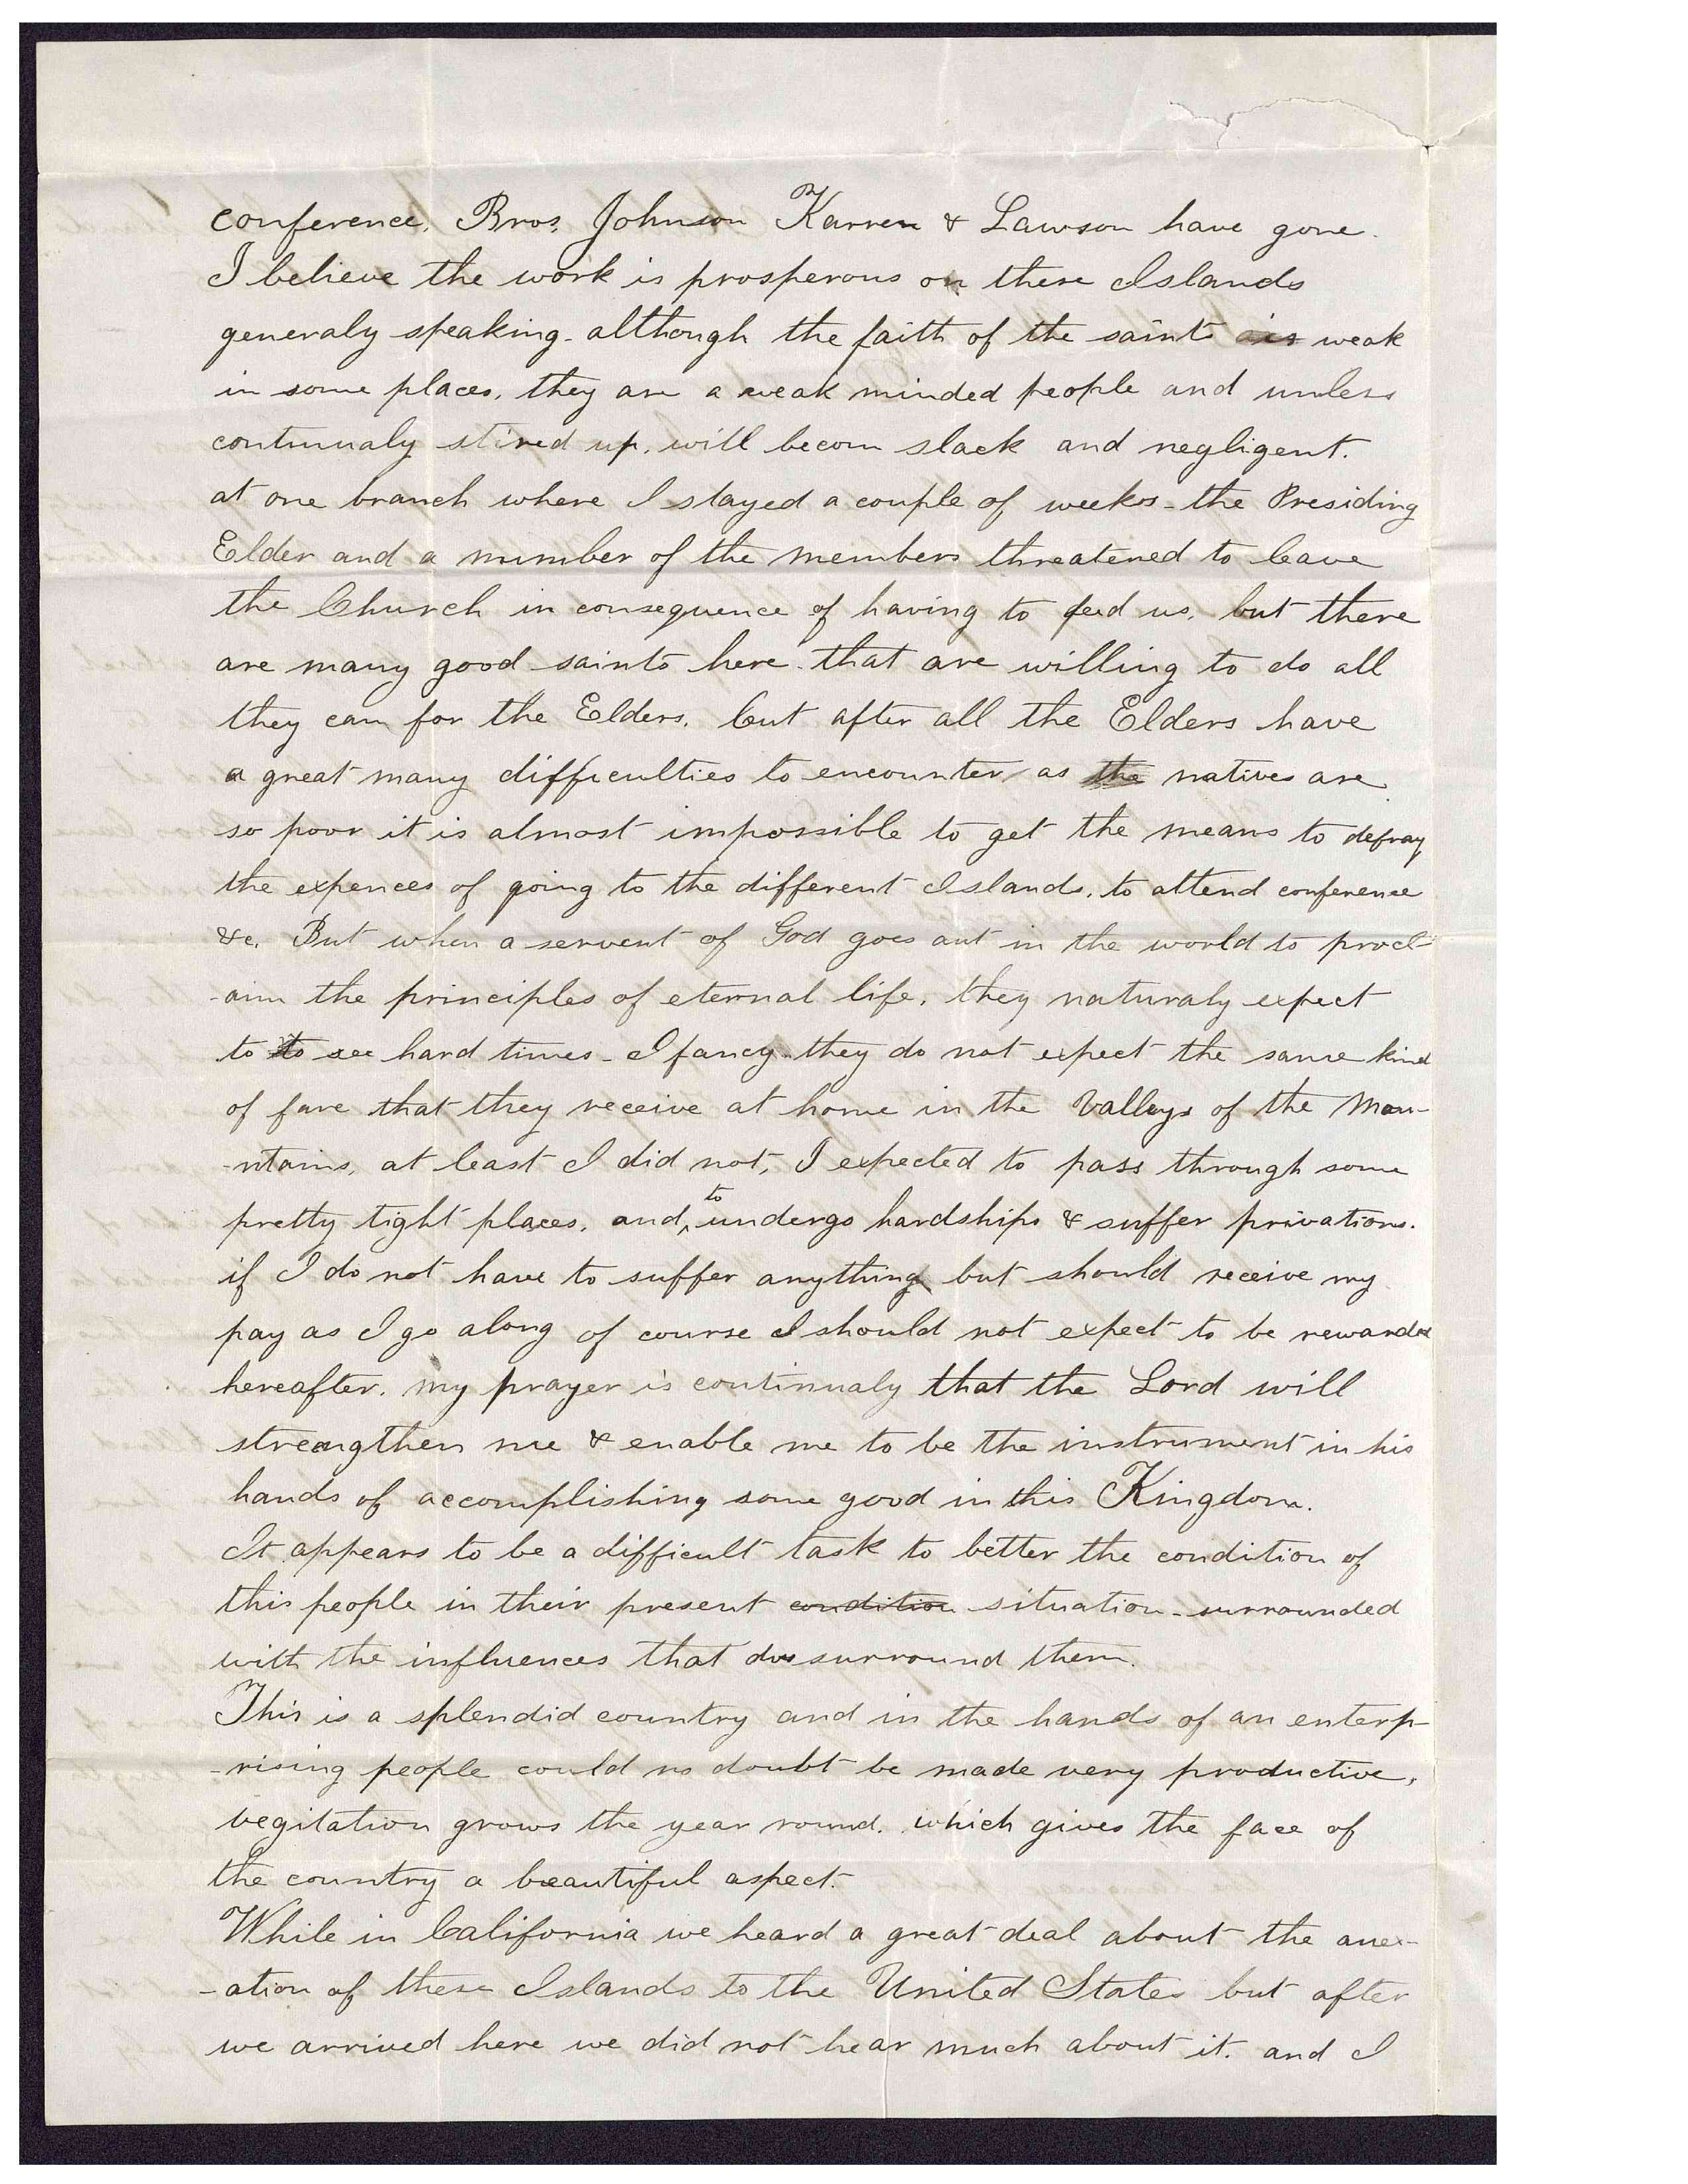 conference. Bros. Johnson Karren & Lawson have gone.
I believe the work is prosperous on these Islands
generaly speaking. although the faith of the saints is weak
in some places, they are a weak minded people and unless
continualy stired up, will becom slack and negligent.
at one branch where I stayed a couple of weeks - the Presiding
Elder and a number of the members threatened to leave
the Church in consequence of having to feed us, but there
are many good saints here that are willing to do all
they can for the Elders, but after all the Elders have
a great many difficulties to encounter as the natives are
so poor it is almost impossible to get the means to defray
the expences of going to the different Islands, to attend conference
&c. But when a servent of God goes out in the world to procl-
-aim the principles of eternal life, they naturaly expect
to to see hard times - I fancy they do not expect the same kind
of fare that they receive at home in the Valleys of the Mou-
-ntains, at least I did not, I expected to pass through some
pretty tight places, and to undergo hardships & suffer privations.
if I do not have to suffer anything but should receive my
pay as I go along of course I should not expect to be rewarded
hereafter. my prayer is continualy that the Lord will
streangthen me & enable me to be the instrument in his
hands of accomplishing some good in this Kingdom.
It appears to be a difficult task to better the condition of
this people in their present condition situation - surrounded
with the influences that do surround them.
This is a splendid country and in the hands of an enterp-
-rising people could no doubt be made very productive,
vegitation grows the year round. which gives the face of
the country a beautiful aspect.
While in California we heard a great deal about the anex-
-ation of these Islands to the United States but after
we arrived here we did not hear much about it. and I